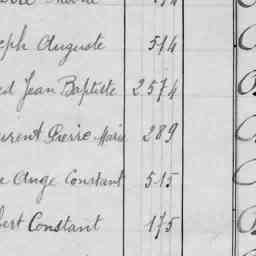 eph Auguste 514
ed Jean Baptiste 2574
urent Pierre Marie 289
e Ange Constant 515
bert Constant 175